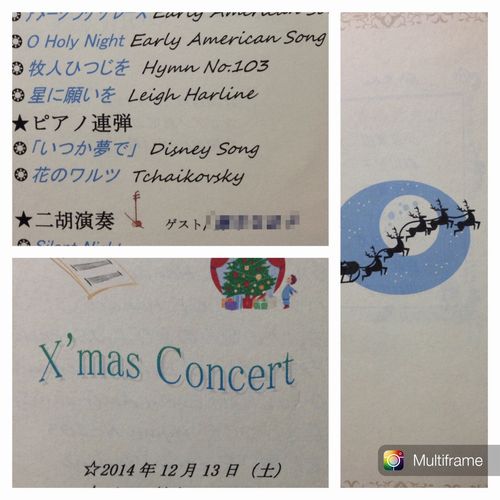 アメージンググレース Early American So
O Holy Night Early American Song
牧人ひつじを Hymn No.103
星に願いを Leigh Harline
★ピアノ連弾
「いつか夢で」 Disney Song
花のワルツ Tchaikovsky
★二胡演奏 ゲスト/
Silent Night
X'mas Concert
☆2014年12月13日（土）
Multiframe